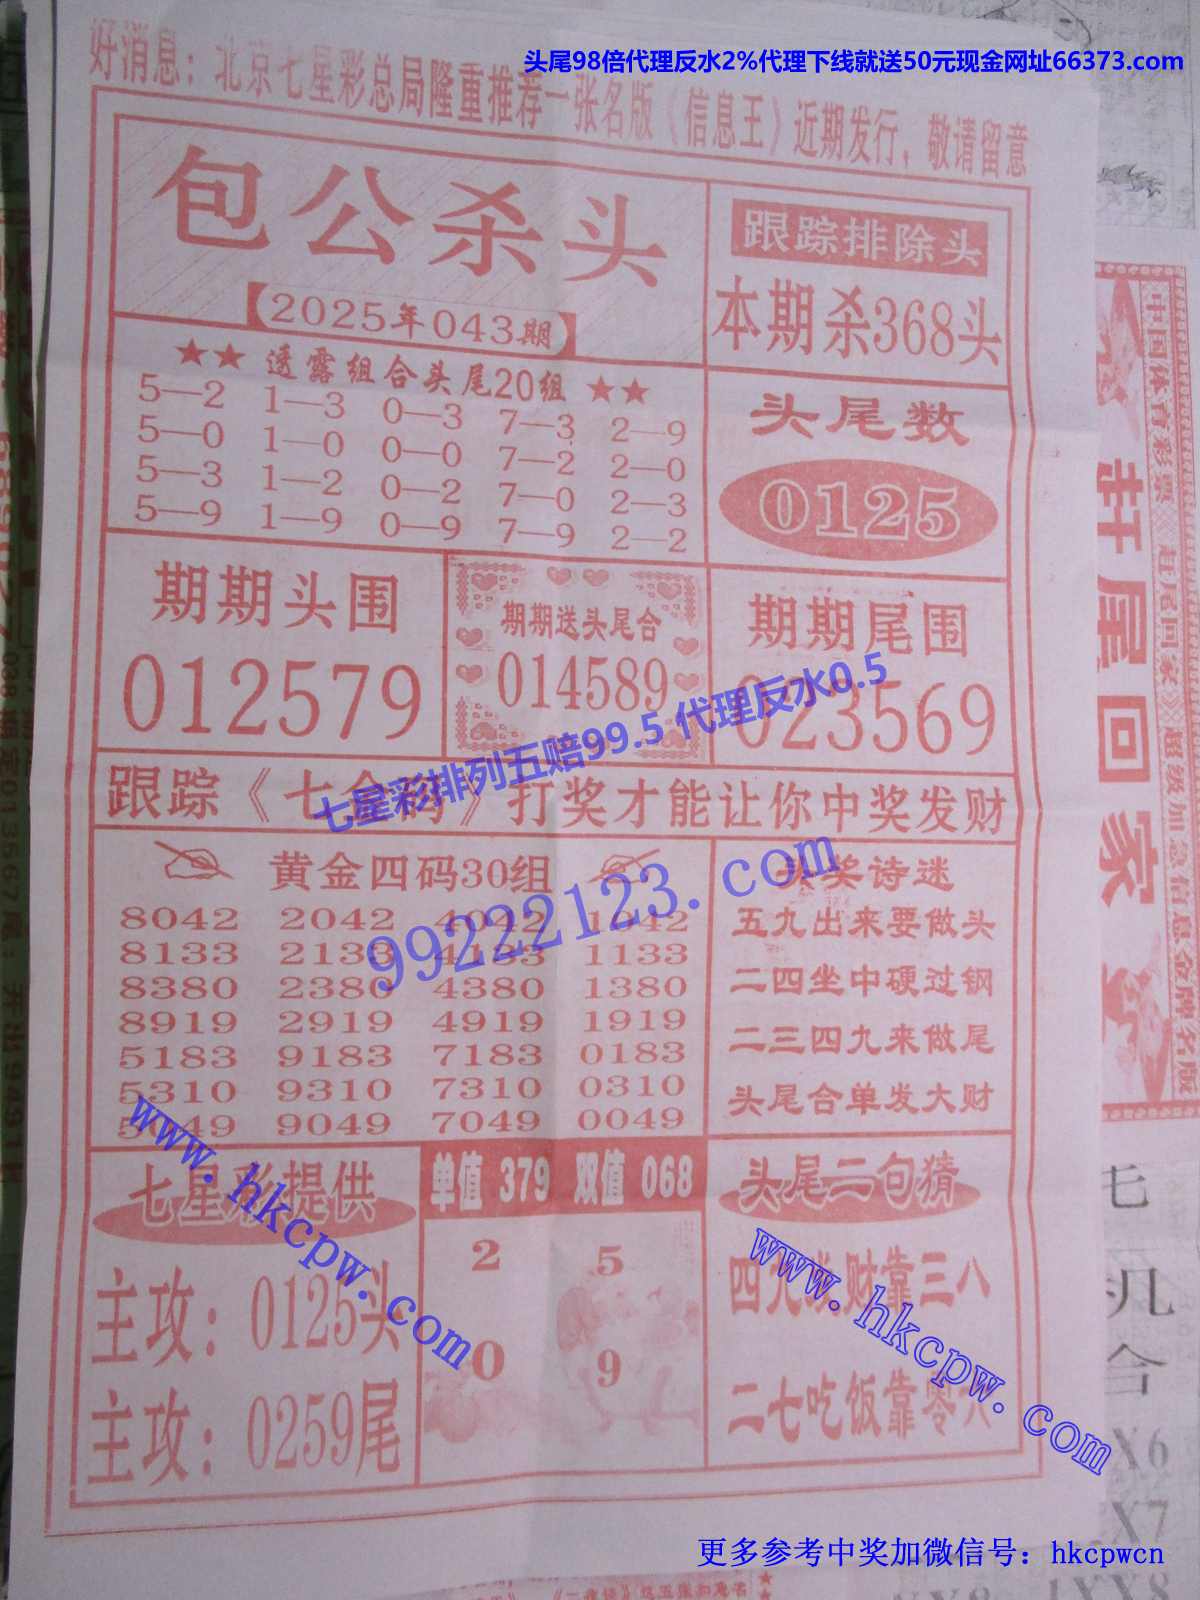 头尾98倍代理反水2%代理下线就送50元现金网址66373.com
好消息：北京七星彩总局隆重推荐一张名版《信息王》近期发行，敬请留意
包公杀头
【2025年043期】
跟踪排除头
本期杀368头
★★ 透露组合头尾20组 ★★
5—2 1—3 0—3 7—3 2—9
5—0 1—0 0—0 7—2 2—0
5—3 1—2 0—2 7—0 2—3
5—9 1—9 0—9 7—9 2—2
头尾数
0125
期期头围
012579
期期送头尾合
014589
期期尾围
023569
七星彩排列五赔99.5 代理反水0.5
跟踪《七 码》打奖才能让你中奖发财
黄金四码30组
8042 2042 4042 1042
8133 2133 4133 1133
8380 2380 4380 1380
8919 2919 4919 1919
5183 9183 7183 0183
5310 9310 7310 0310
5049 9049 7049 0049
99222123.com
头奖诗迷
五九出来要做头
二四坐中硬过钢
二三四九来做尾
头尾合单发大财
七星彩提供
主攻：0125头
主攻：0259尾
www.hkcpw.com
单值 379 双值 068
2 5
0 9
头尾二句猜
四九 财靠三八
二七吃饭靠零六
www.hkcpw.com
中国体育彩票
赶尾回家
赶尾回家
超级加急信息金牌名版
七
几
合
X6
X7
1XX8
更多参考中奖加微信号：hkcpwcn